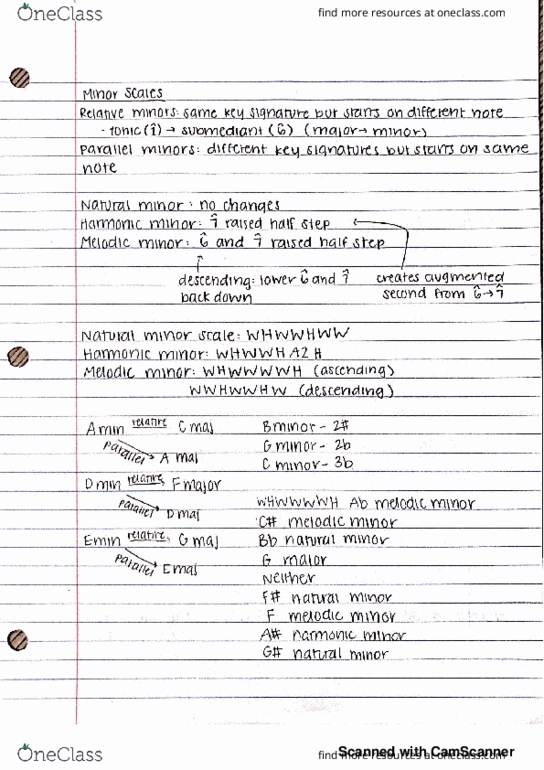 OneClass
find more resources at oneclass.com
Minor Scales
Relative minors: same key signature but starts on different note
- tonic (1̂) → submediant (6̂) (major → minor)
Parallel minors: different key signatures but starts on same
note
Natural minor: no changes
Harmonic minor: 7̂ raised half step
Melodic minor: 6̂ and 7̂ raised half step
descending: lower 6̂ and 7̂
back down
creates augmented
second from 6̂→7̂
Natural minor scale: WHWWHWW
Harmonic minor: WHWWH A2 H
Melodic minor: WHWWWWH (ascending)
WWHWWHW (descending)
A min relative C maj
parallel A maj
D min relative F major
parallel D maj
E min relative G maj
parallel E maj
B minor - 2#
G minor - 2b
C minor - 3b
WHWWWWH Ab melodic minor
C# melodic minor
Bb natural minor
G major
Neither
F# natural minor
F melodic minor
A# harmonic minor
G# natural minor
OneClass
find more resources at oneclass.com
Scanned with CamScanner